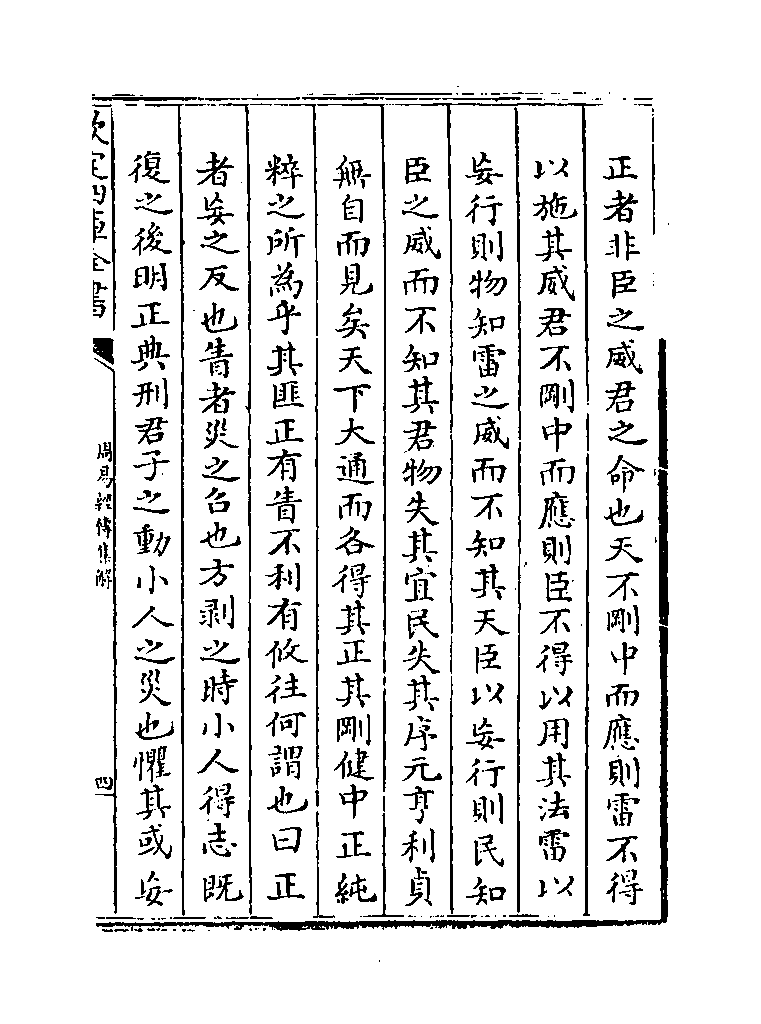 正者非臣之威君之命也天不剛中而應則雷不得
以施其威君不剛中而應則臣不得以用其法雷以
妄行則物知雷之威而不知其天臣以妄行則民知
臣之威而不知其君物失其宜民失其序元亨利貞
無自而見矣天下大通而各得其正其剛健中正純
粹之所為乎其匪正有眚不利有攸往何謂也曰正
者妄之反也眚者災之召也方剥之時小人得志既
復之後明正典刑君子之動小人之災也懼其或妄
欽定四庫全書
周易經傳集解
四